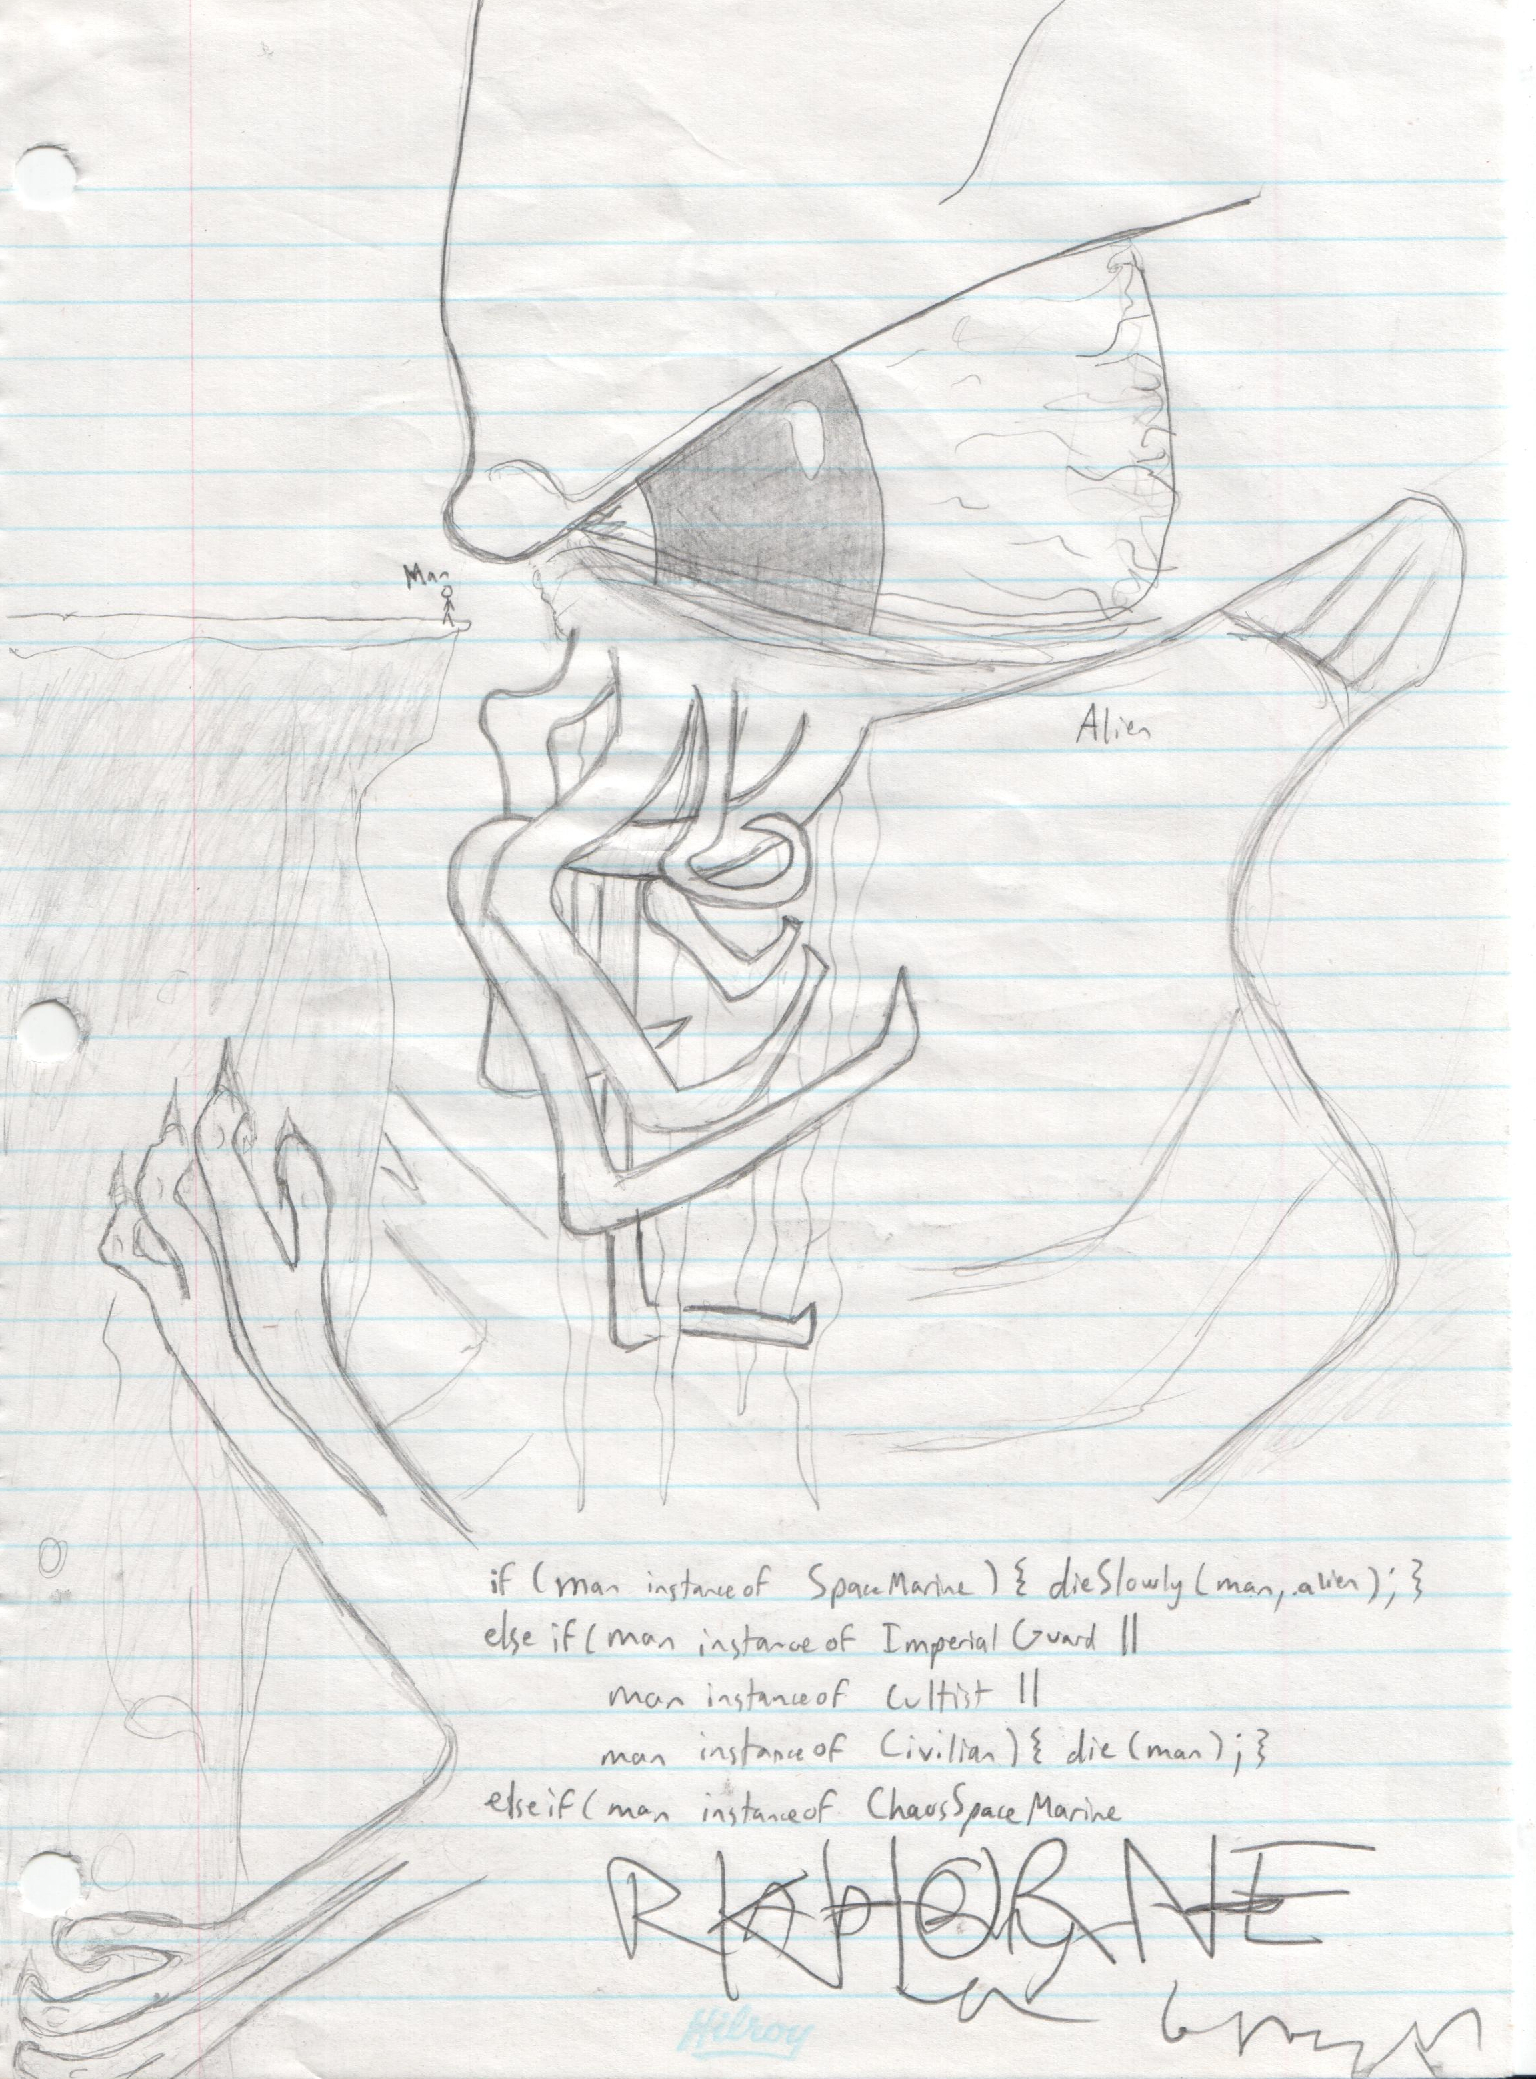 Man
Alien
if (man instanceof SpaceMarine) { dieSlowly(man, alien); }
else if (man instanceof Imperial Guard ||
man instanceof Cultist ||
man instanceof Civilian) { die (man); }
else if (man instanceof ChaosSpaceMarine
Hilroy